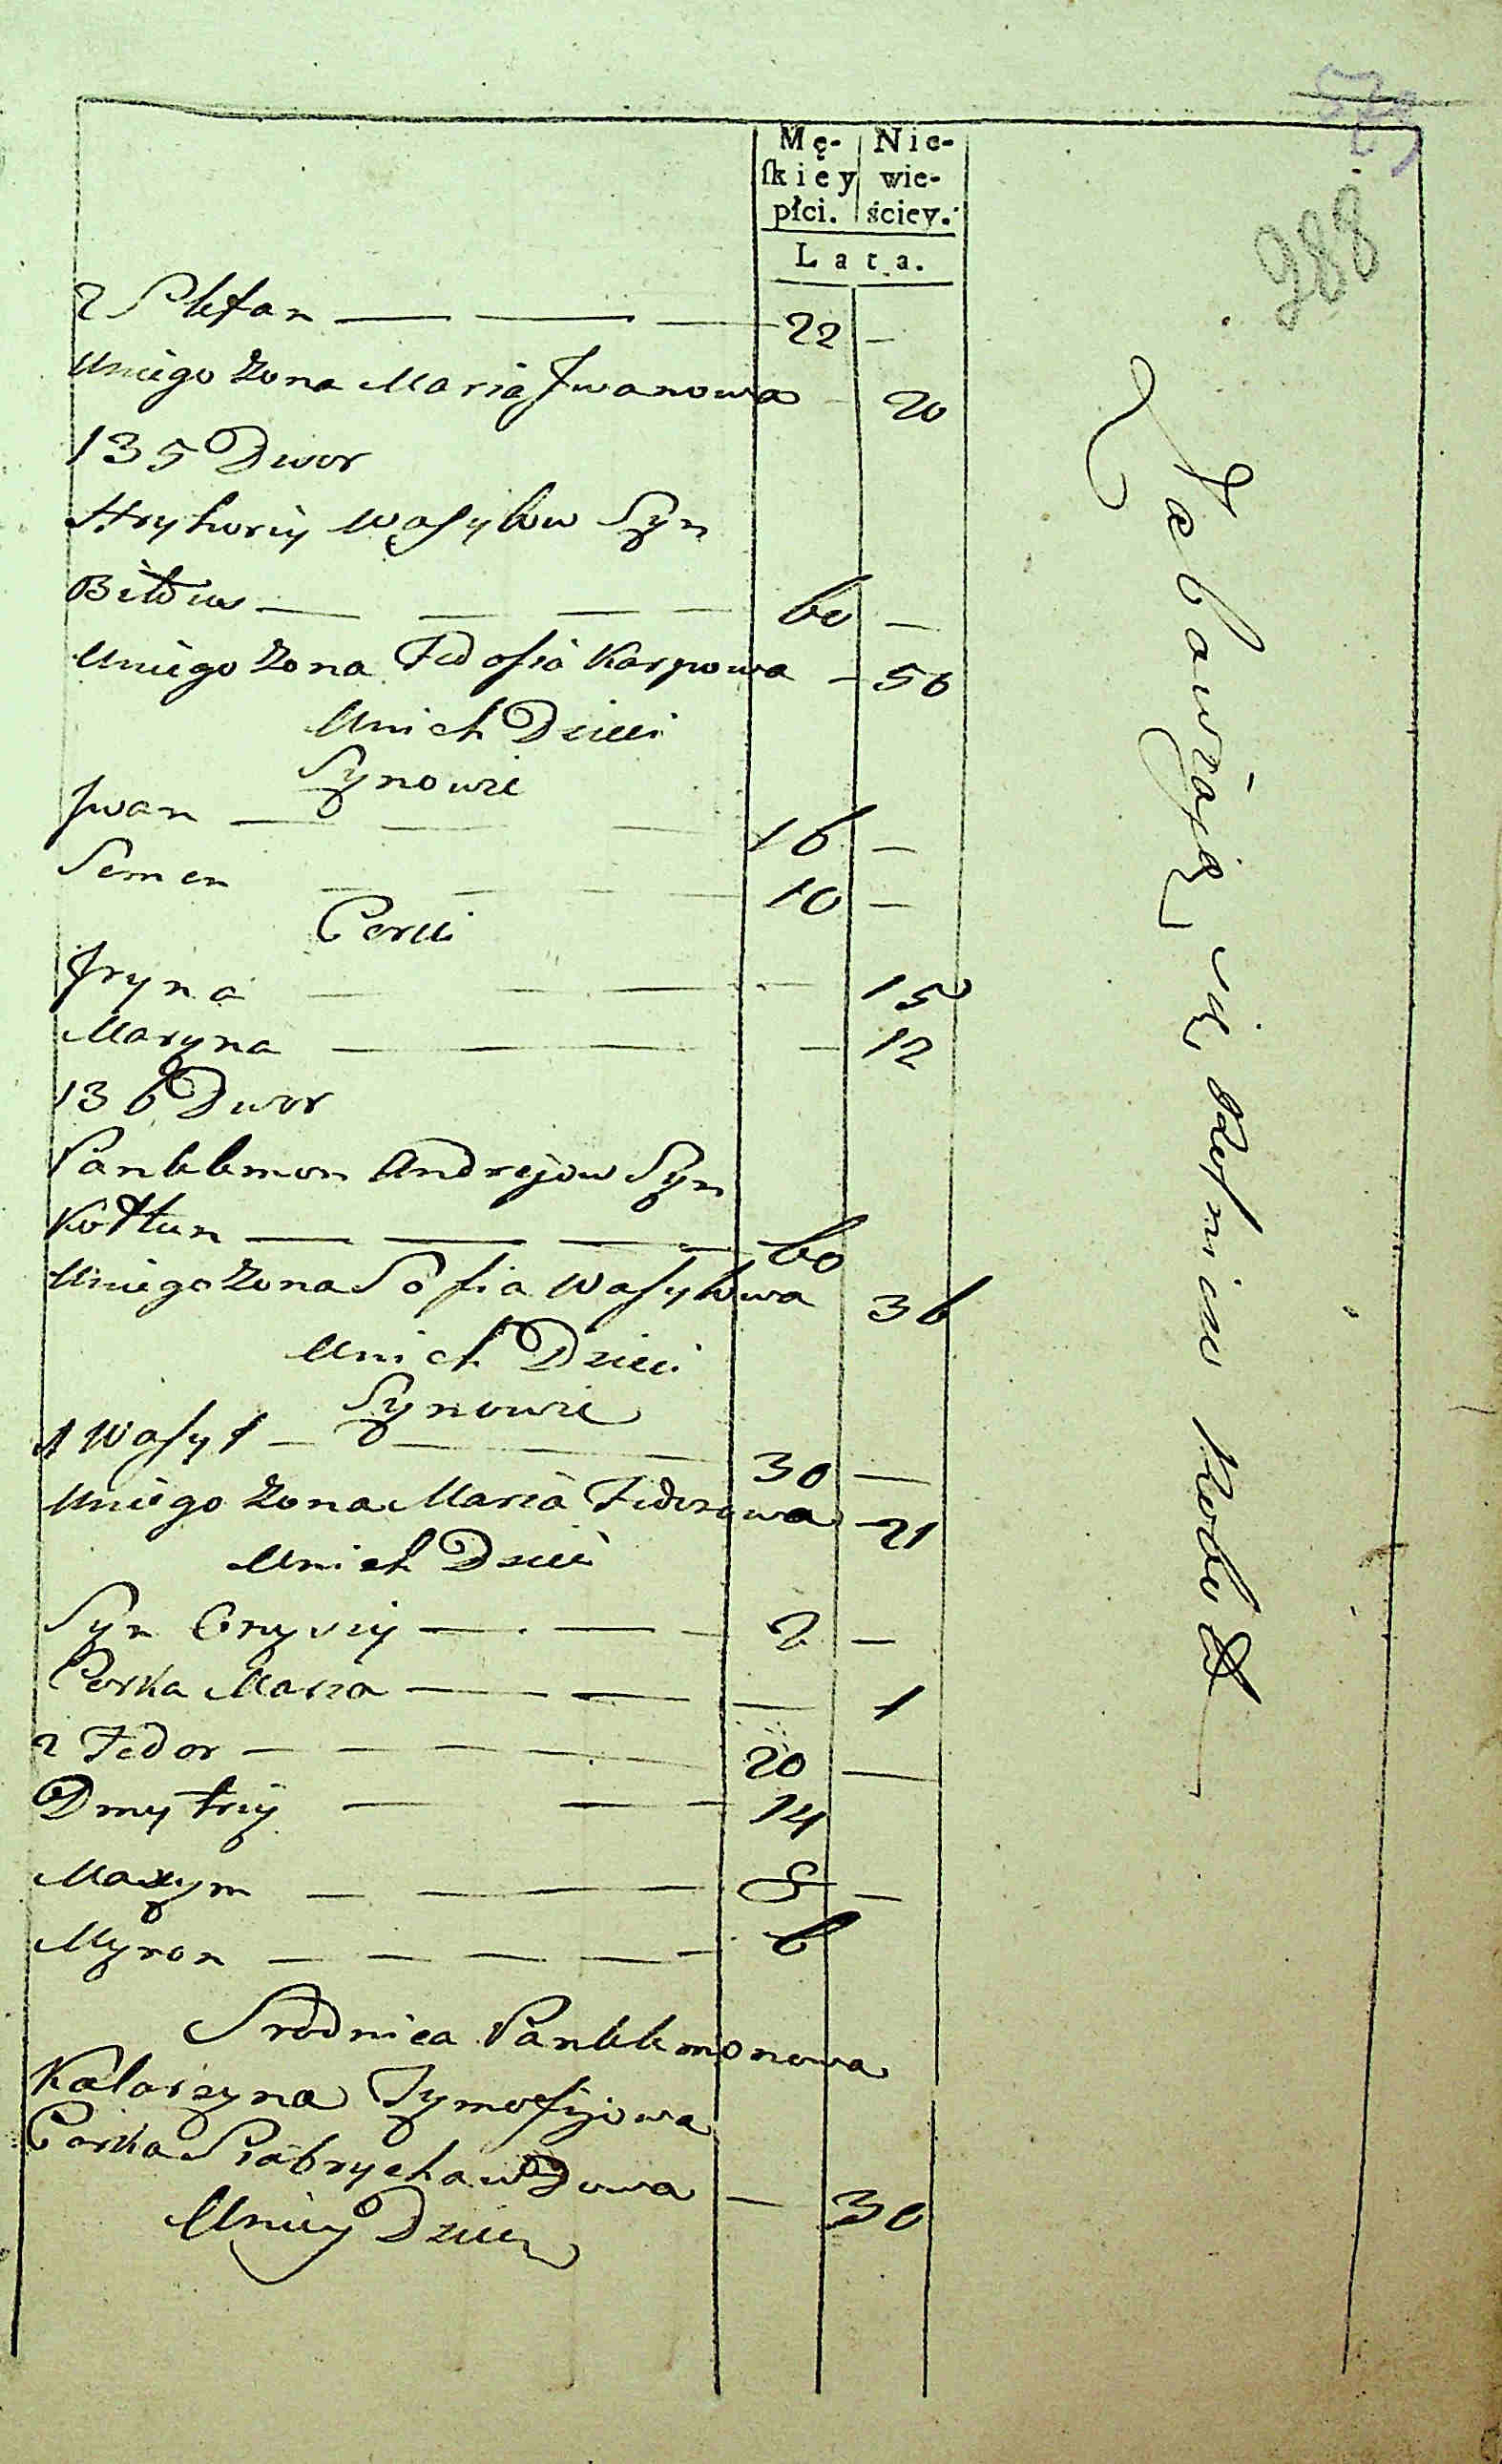 Mę-
ſkiey
płci.
Nie-
wie-
ściey.
Lata.
288
2 Stefan — — — 22 —
Uniego Zona Maria Jwanowa — 20
135 Dwor
Hryhoriy Wasylow Syn
— — — 60 —
Uniego Zona Fedosia Karpowa — 56
Unich Dzieci
Synowie
Jwan — — — 16 —
Semen — — — — 10 —
Corki
Jryna — — — — 15
Maryna — — — 12
136 Dwor
Pantelemon Andrejow Syn
Kołtun — — — — 60
Uniego Zona Sofia Wasylowa 36
Unich Dzieci
Synowie
1 Wasyl — — — — 30 —
Uniego Zona Maria Fedorowa — 21
Unich Dzieci
Syn — — — 2 —
Corka Maria — — — — 1
2 Fedor — — — — — 20 —
Dmytriy — — — 14
Maxym — — — 8 —
Myron — — — — — 6
Pantelemonowa
Katarzyna Tymofijowa
Corka Wdowa — 30
Uniey Dzieci
Zabawiaią się Rolniczo Robotą